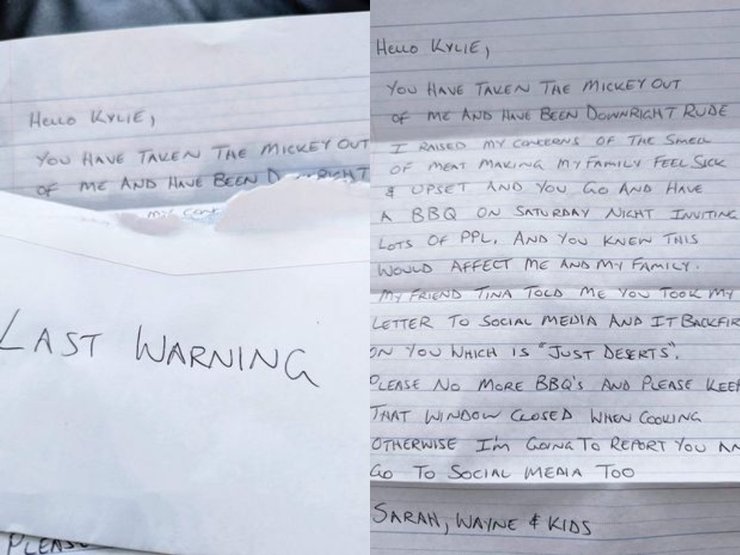 Hello Kylie,
You have taken the mickey out
of me and have been D RIGHT
my conc
LAST WARNING
PLEAS
Hello Kylie,
You have taken the mickey out
of me and have been downright rude
I raised my concerns of the smell
of meat making my family feel sick
& upset and you go and have
a BBQ on Saturday night inviting
lots of ppl, and you knew this
would affect me and my family.
My friend Tina told me you took my
letter to social media and it backfir
on you which is "just deserts".
Please no more BBQ's and please keep
that window closed when cooking
otherwise I'm going to report you an
go to social media too
Sarah, Wayne & kids